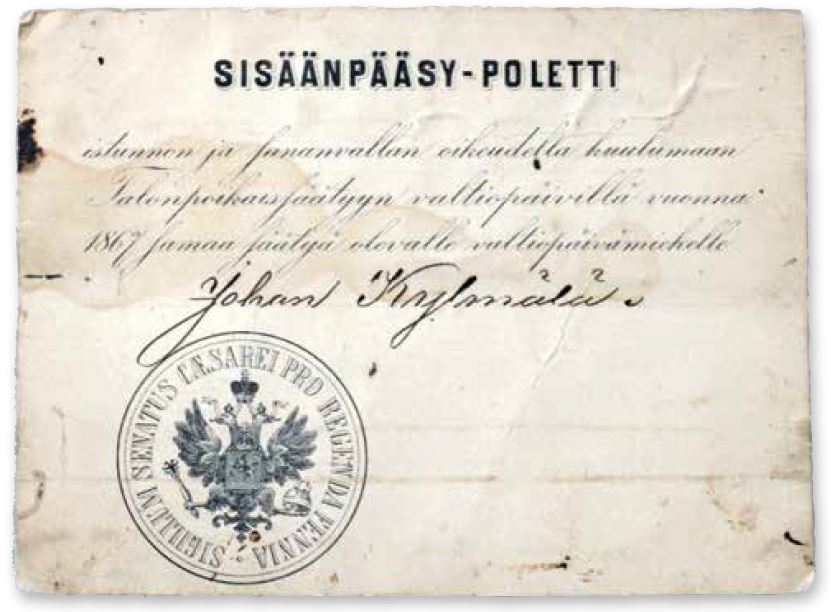 SISÄÄNPÄÄSY-POLETTI
istunnon ja sananvallan oikeudella kuulumaan
Talonpoikaissäätyyn valtiopäivillä vuonna
1867 samaa säätyä olevalle valtiopäivämiehelle
Johan Kylmälä.
SIGILLUM SENATUS CÆSAREI PRO REGENDA FENNIA